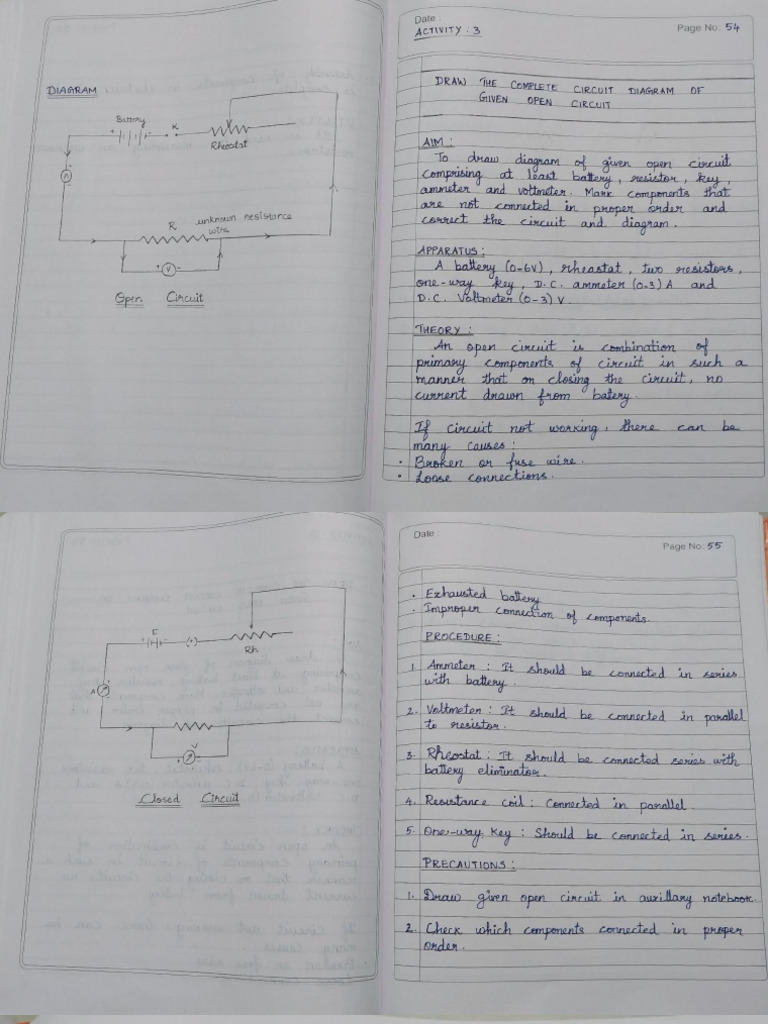 DIAGRAM
Battery
+ -
K
Rheostat
A
R
unknown resistance
wire
+ V -
Open Circuit
Date :
ACTIVITY : 3
Page No: 54
DRAW THE COMPLETE CIRCUIT DIAGRAM OF
GIVEN OPEN CIRCUIT
AIM :
To draw diagram of given open circuit
comprising at least battery, resistor, key,
ammeter and voltmeter. Mark components that
are not connected in proper order and
correct the circuit and diagram.
APPARATUS :
A battery (0-6V), rheastat, two resistors,
one-way key, D.C. ammeter (0-3) A and
D.C. Voltmeter (0-3) V
THEORY :
An open circuit is combination of
primary components of circuit in such a
manner that on closing the circuit, no
current drawn from batery.
If circuit not working, there can be
many causes :
• Broken or fuse wire.
• Loose connections.
E
+ -
(•)
Rh
A
V
Closed Circuit
Date :
Page No: 55
• Exhausted battery
• Improper connection of components.
PROCEDURE :
1. Ammeter : It should be connected in series
with battery.
2. Voltmeter : It should be connected in parallel
to resistor.
3. Rheostat : It should be connected series with
battery eliminator.
4. Resistance coil : Connected in parallel.
5. One-way Key : Should be connected in series.
PRECAUTIONS :
1. Draw given open circuit in auxillary notebook.
2. Check which components connected in proper
order.